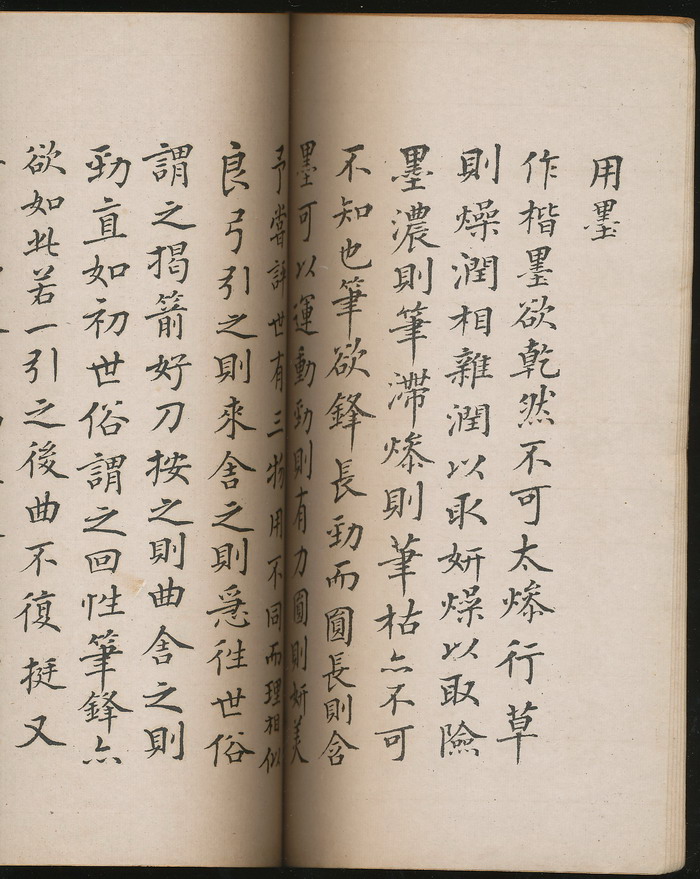 用墨
作楷墨欲乾然不可太燥行草
則燥潤相雜潤以取妍燥以取險
墨濃則筆滯燥則筆枯亦不可
不知也筆欲鋒長勁而圓長則含
墨可以運動勁則有力圓則妍美
予嘗評世有三物用不同而理相似
良弓引之則來舍之則急徃世俗
謂之揭箭好刀按之則曲舍之則
勁直如初世俗謂之回性筆鋒亦
欲如此若一引之後曲不復挺又